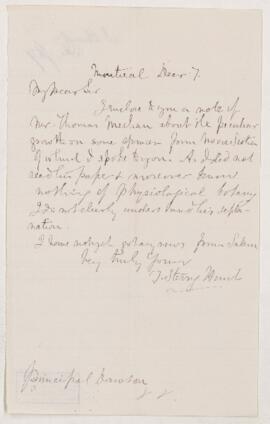 Montreal Decr 7.
My Dear Sir
I enclose to you a note of
Mr. Thomas Meehan about the peculiar
growth on some spruces from Nova Scotia
of which I spoke to you. As I did not
read his paper & moreover know
nothing of physiological botany
I do not clearly understand his explanation.
I have not yet got any news from Salem
Very truly yours
T. Sterry Hunt
Principal Dawson